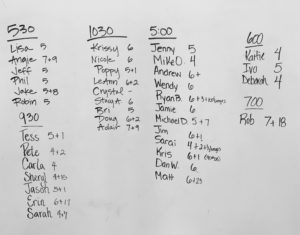 530
Lisa 5
Angie 7+9
Jeff 5
Phil 5
Jake 5+8
Robin 5
930
Tess 5+1
Pete 4+2
Carla 4
Sheryl 4+13
Jason 5+1
Erin 6+17
Sarah 4+7
1030
Krissy 6
Nicole 6
Poppy 5+1
LeAnn 6+2
Crystal -
Stacy A. 6
Bri 5
Doug 6+2
Adair 7+9
5:00
Jenny 5
Mike O. 4
Andrew 6+
Wendy 6
Ryan B. 6+3
Jamie 6
Michael D. 5+7
Jim
Sarai 4+2
Kris 6+1
Dan W. 6
Matt 6+23
600
Kaitie 4
Ivo 5
Deborah 4
700
Rob 7+18